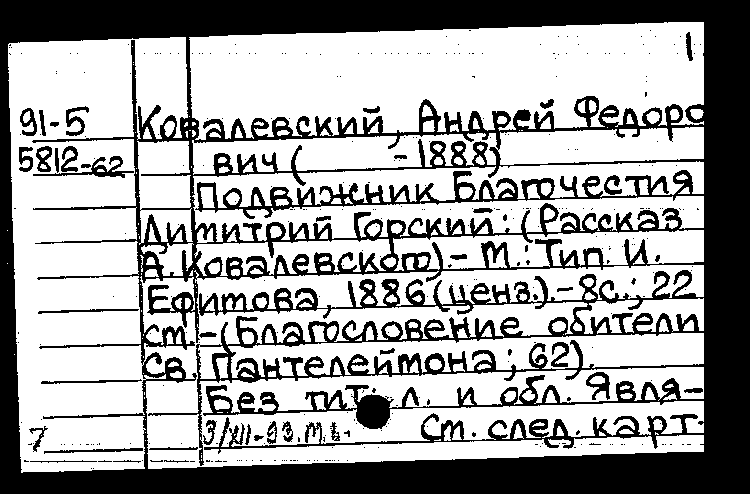 1
91-5 Ковалевский, Андрей Федоро
5812-62 вич ( -1888)
Подвижник благочестия
Димитрий Горский: (Рассказ
А. Ковалевского).- М.: Тип. И.
Ефимова, 1886 (ценз.).- 8с.; 22
см.-(Благословение обители
Св. Пантелеймона; 62).
Без тит. л. и обл. Явля-
7 3/XII-93. Ст. след. карт.